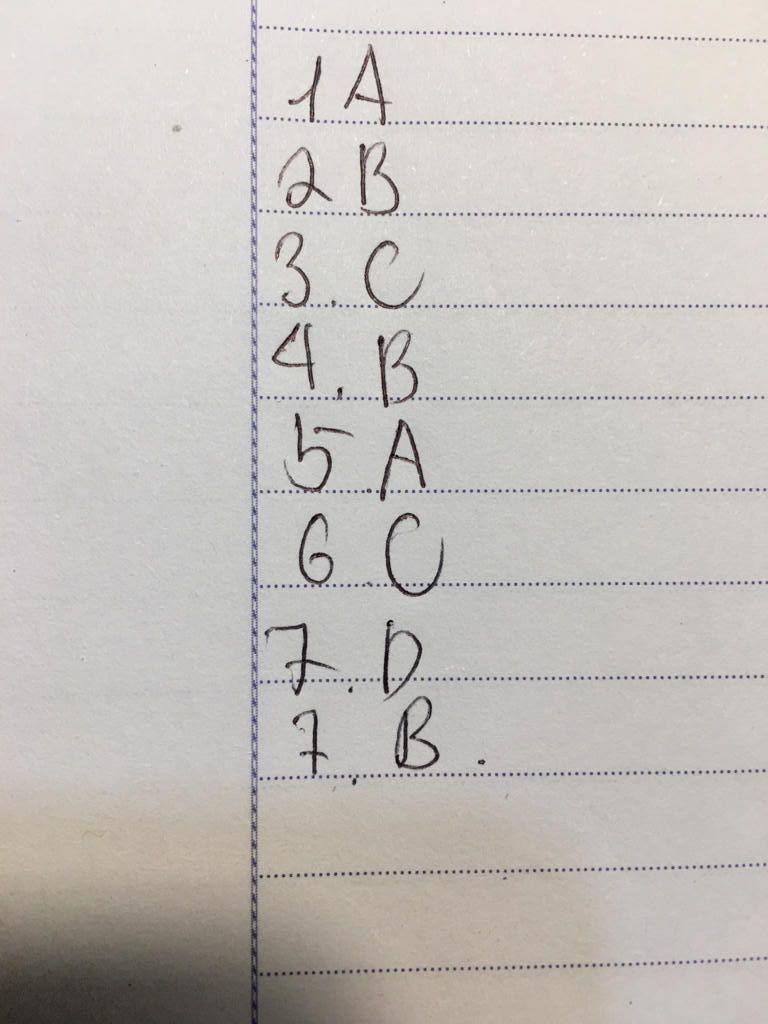 1 A
2 B
3. C
4. B
5 A
6 C
7. D
7. B.